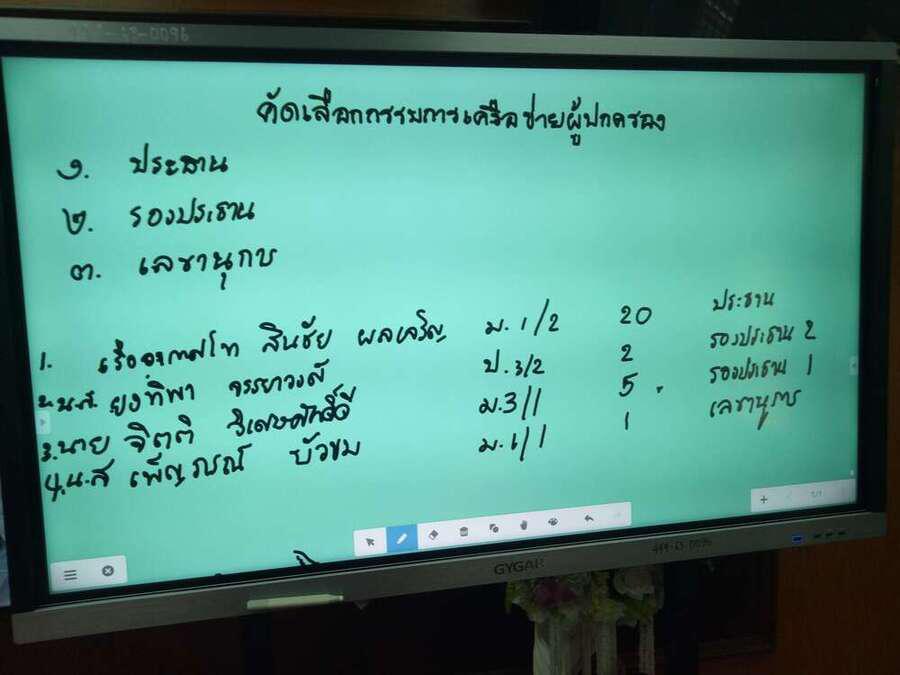 คัดเลือกกรรมการเครือข่ายผู้ปกครอง
๑. ประธาน
๒. รองประธาน
๓. เลขานุการ
1. เรืออากาศโท สินชัย ผลเจริญ ม.1/2 20 ประธาน
2.น.ส. ยงทิพา จรรยาวงศ์ ป.3/2 2 รองประธาน 2
3.นาย จิตติ วิเศษศักดิ์ศรี ม.3/1 5. รองประธาน 1
4.น.ส เพ็ญ บัวชม ม.1/1 1 เลขานุการ
1/1
GYGAR
63-0096